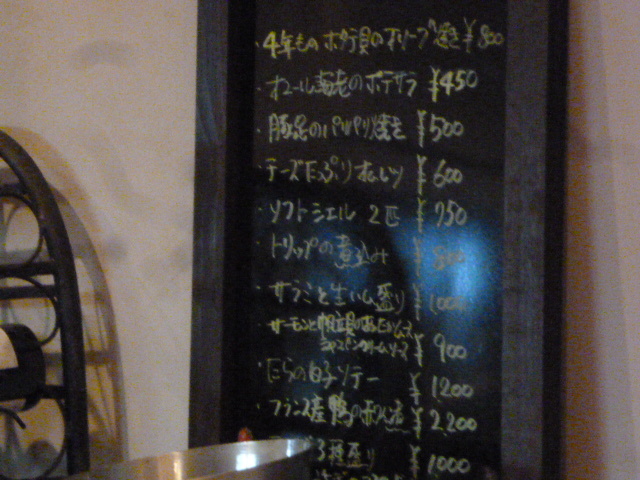 ・4年もの ホタテ貝のオリーブ焼き ¥800
・オマール海老のポテサラ ¥450
・豚足のパリパリ焼き ¥500
・チーズたっぷりオムレツ ¥600
・ソフトシェル 2匹 ¥750
・トリップの煮込み ¥800
・サラミと生ハム盛り ¥1000
・サーモンと帆立貝の
シャンパンクリームソース ¥900
・たらの白子ソテー ¥1200
・フランス産鴨の ¥2,200
3種盛り ¥1000